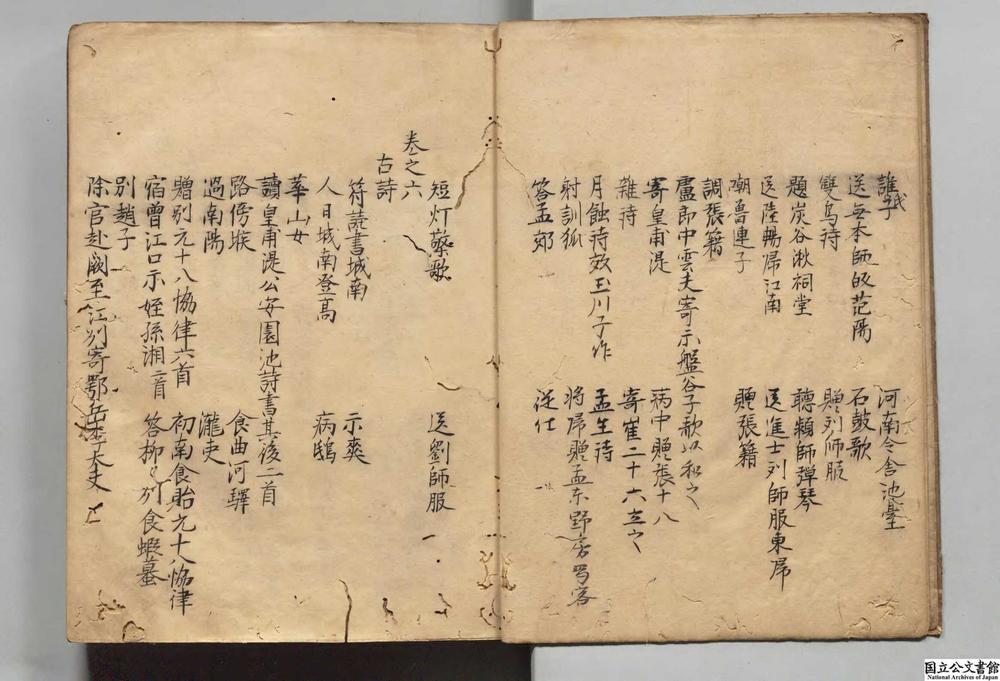 誰氏子　河南令舎池臺
送无本師皈范陽　石鼓歌
雙鳥詩　贈刘師服
題炭谷湫祠堂　聴頴師弾琴
送陸暢㱕江南　送進士刘師服東㱕
嘲魯連子　贈張籍
調張籍
盧郎中雲夫寄示盤谷子歌以和之
寄皇甫湜　病中贈張十八
雜詩　寄崔二十六立之
月蝕詩效玉川子作　孟生詩
射訓狐　将㱕贈孟东野房蜀客
答孟郊　従仕
短灯檠歌　送劉師服
卷之六
古詩
符読書城南　示爽
人日城南登高　病鴟
華山女
讀皇甫湜公安園池詩書其後二首
路傍堠　食曲河驛
過南陽　瀧吏
贈别元十八恊律六首　初南食貽元十八恊律
宿曽江口示姪孫湘二首　答柳柳州食蝦蟇
别趙子
除官赴闕至江州寄鄂岳李大夫
国立公文書館
National Archives of Japan